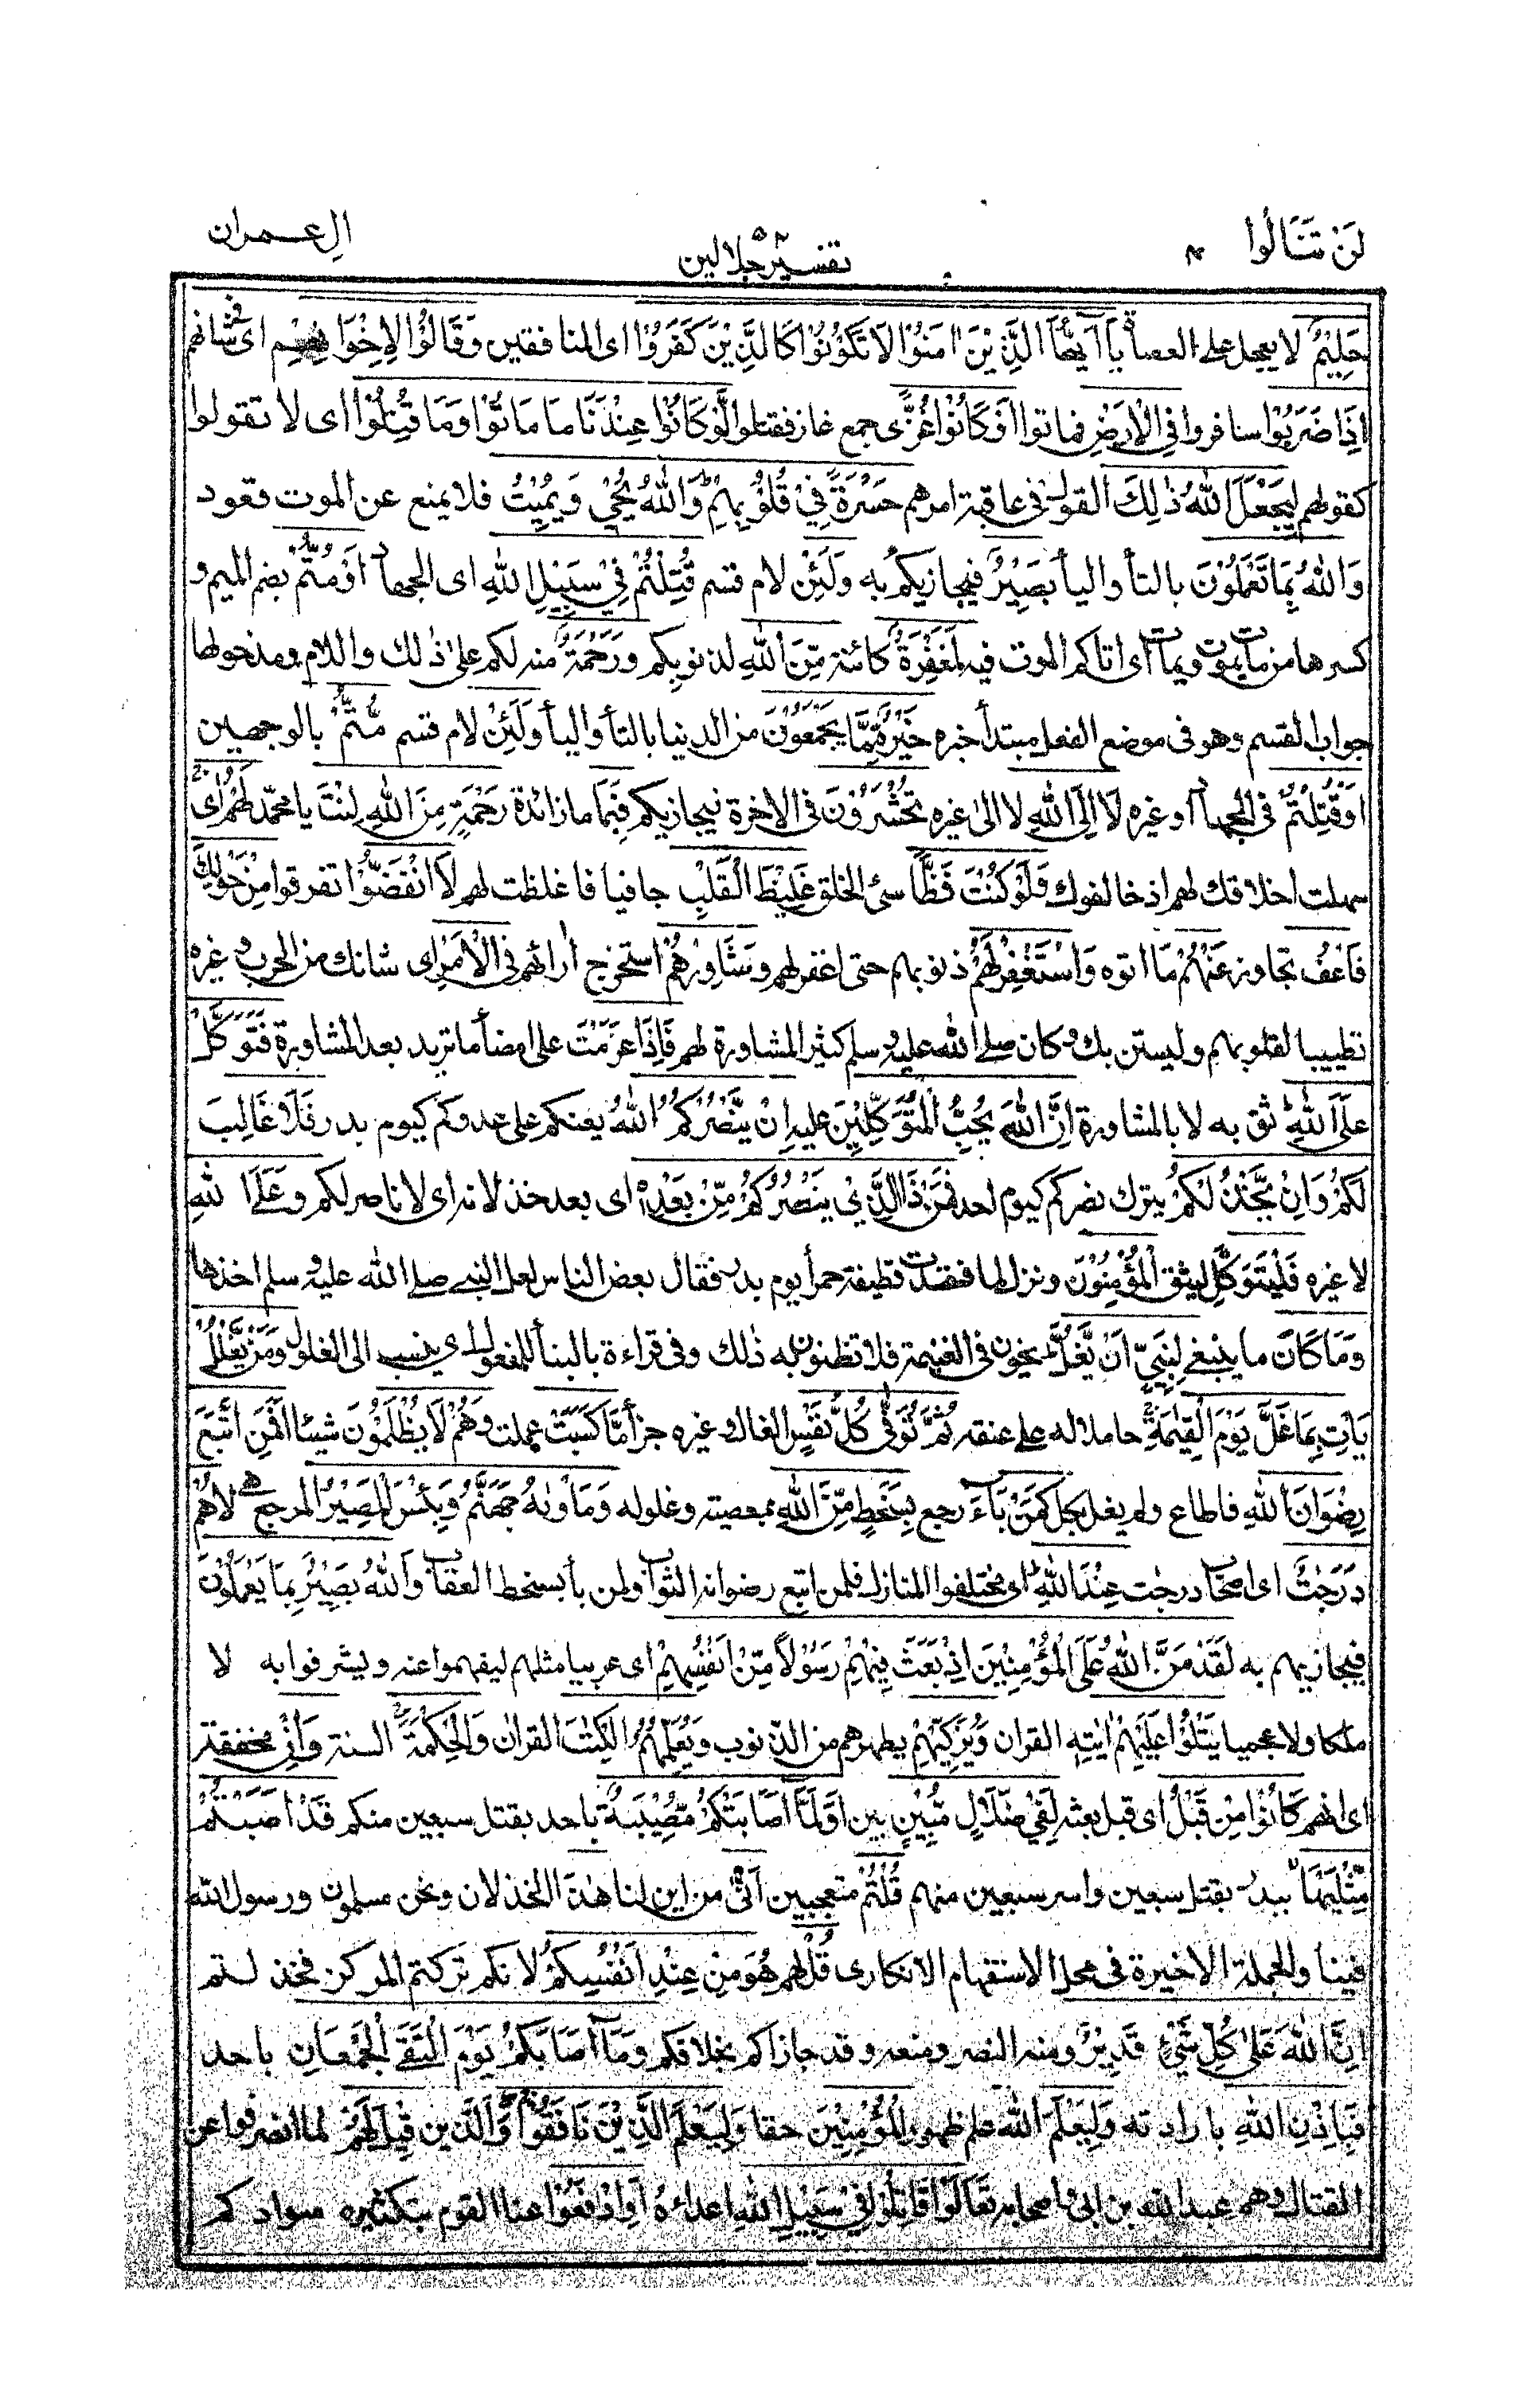 لَنْ تَنَالُوا ٤
تفسير جلالين
اٰلِ عمران
حَلِيْمٌ لا يعجل على العصاة يٰٓاَيُّهَا الَّذِيْنَ اٰمَنُوْا لَا تَكُوْنُوْا كَالَّذِيْنَ كَفَرُوْا اى المنافقين وَقَالُوْا لِاِخْوَانِهِمْ اى فى شانهم
اِذَا ضَرَبُوْا سافروا فِى الْاَرْضِ فماتوا اَوْ كَانُوْا غُزًّى جمع غاز فقتلوا لَّوْ كَانُوْا عِنْدَنَا مَا مَاتُوْا وَمَا قُتِلُوْا اى لا تقولوا
كقولهم لِيَجْعَلَ اللّٰهُ ذٰلِكَ القول فى عاقبة امرهم حَسْرَةً فِيْ قُلُوْبِهِمْ وَاللّٰهُ يُحْيٖ وَيُمِيْتُ فلا يمنع عن الموت قعود
وَاللّٰهُ بِمَا تَعْمَلُوْنَ بالتأ واليأ بَصِيْرٌ فيجازيكم به وَلَئِنْ لام قسم قُتِلْتُمْ فِيْ سَبِيْلِ اللّٰهِ اى الجهاد اَوْ مُتُّمْ بضم الميم و
كسرها من مات يموت ويمات اى اتاكم الموت فيه لَمَغْفِرَةٌ كائنة مِّنَ اللّٰهِ لذنوبكم وَرَحْمَةٌ منه لكم على ذٰلك واللام ومدخولها
جواب القسم وهو فى موضع الفعل مبتدأ خبره خَيْرٌ مِّمَّا يَجْمَعُوْنَ من الدنيا بالتأ واليأ وَلَئِنْ لام قسم مُّتُّمْ بالوجهين
اَوْ قُتِلْتُمْ فى الجهاد او غيره لَاۡ اِلَى اللّٰهِ لا الى غيره تُحْشَرُوْنَ فى الاخرة فيجازيكم فَبِمَا ما زائدة رَحْمَةٍ مِنَ اللّٰهِ لِنْتَ يا محمد لَهُمْ اى
سهلت اخلاقك لهم اذ خالفوك وَلَوْ كُنْتَ فَظًّا سئ الخلق غَلِيْظَ الْقَلْبِ جافيا فاغلظت لهم لَا انْفَضُّوْا تفرقوا مِنْ حَوْلِكَ
فَاعْفُ تجاوز عَنْهُمْ ما اتوه وَاسْتَغْفِرْ لَهُمْ ذنوبهم حتى اغفر لهم وَشَاوِرْهُمْ استخرج اٰرائهم فِى الْاَمْرِ اى شانك من الحرب وغيره
تطييبا لقلوبهم وليستن بك وكان صلى الله عليه وسلم كثير المشاورة لهم فَاِذَا عَزَمْتَ على امضأ ما تريد بعد المشاورة فَتَوَكَّلْ
عَلَى اللّٰهِ ثق به لا بالمشاورة اِنَّ اللّٰهَ يُحِبُّ الْمُتَوَكِّلِيْنَ عليه اِنْ يَّنْصُرْكُمُ اللّٰهُ يعنكم على عدوكم كيوم بدر فَلَا غَالِبَ
لَكُمْ وَاِنْ يَّخْذُلْكُمْ يترك نصركم كيوم احد فَمَنْ ذَا الَّذِيْ يَنْصُرُكُمْ مِّنْ بَعْدِهٖ اى بعد خذلانه اى لا ناصر لكم وَعَلَى اللّٰهِ
لا غيره فَلْيَتَوَكَّلِ ليثق الْمُؤْمِنُوْنَ ونزل لما فقدت قطيفة حمرأ يوم بدر فقال بعض الناس لعل النبى صلى الله عليه وسلم اخذها
وَمَا كَانَ ما ينبغى لِنَبِيٍّ اَنْ يَّغُلَّ يخون فى الغنيمة فلا تظنون به ذٰلك وفى قراءة بالبنأ للمفعول اى ينسب الى الغلول وَمَنْ يَّغْلُلْ
يَاْتِ بِمَا غَلَّ يَوْمَ الْقِيٰمَةِ حاملا له على عنقه ثُمَّ تُوَفّٰى كُلُّ نَفْسٍ الغال وغيره جزأ مَّا كَسَبَتْ عملت وَهُمْ لَا يُظْلَمُوْنَ شيئا اَفَمَنِ اتَّبَعَ
رِضْوَانَ اللّٰهِ فاطاع ولم يغل كَمَنْ بَآءَ رجع بِسَخَطٍ مِّنَ اللّٰهِ بمعصيته وغلوله وَمَاْوٰىهُ جَهَنَّمُ وَبِئْسَ الْمَصِيْرُ المرجع هى لا هُمْ
دَرَجٰتٌ اى اصحاب درجٰت عِنْدَ اللّٰهِ اى مختلفوا المنازل فلمن اتبع رضوانه الثواب ولمن بأ بسخط العقاب وَاللّٰهُ بَصِيْرٌ بِمَا يَعْمَلُوْنَ
فيجازيهم به لَقَدْ مَنَّ اللّٰهُ عَلَى الْمُؤْمِنِيْنَ اِذْ بَعَثَ فِيْهِمْ رَسُوْلًا مِّنْ اَنْفُسِهِمْ اى عربيا مثلهم ليفهموا عنه ويشرفوا به لا
ملكا ولا عجميا يَتْلُوْا عَلَيْهِمْ اٰيٰتِهٖ القران وَيُزَكِّيْهِمْ يطهرهم من الذنوب وَيُعَلِّمُهُمُ الْكِتٰبَ القراٰن وَالْحِكْمَةَ السنة وَاِنْ مخففة
اى انهم كَانُوْا مِنْ قَبْلُ اى قبل بعثه لَفِيْ ضَلٰلٍ مُّبِيْنٍ بين اَوَلَمَّآ اَصَابَتْكُمْ مُّصِيْبَةٌ باحد بقتل سبعين منكم قَدْ اَصَبْتُمْ
مِّثْلَيْهَا ببدر بقتل سبعين واسر سبعين منهم قُلْتُمْ متعجبين اَنّٰى من اين لنا هٰذَا الخذلان ونحن مسلمون ورسول الله
فينا والجملة الاخيرة فى محل الاستفهام الانكارى قُلْ لهم هُوَ مِنْ عِنْدِ اَنْفُسِكُمْ لانكم تركتم المركز فخذلتم
اِنَّ اللّٰهَ عَلٰى كُلِّ شَيْءٍ قَدِيْرٌ ومنه النصر ومنعه وقد جازاكم بخلافكم وَمَآ اَصَابَكُمْ يَوْمَ الْتَقَى الْجَمْعَانِ باحد
فَبِاِذْنِ اللّٰهِ بارادته وَلِيَعْلَمَ الله علم ظهور الْمُؤْمِنِيْنَ حقا وَلِيَعْلَمَ الَّذِيْنَ نَافَقُوْا وَالذين قِيْلَ لَهُمْ لما انصرفوا عن
القتال وهم عبد الله بن ابى واصحابه تَعَالَوْا قَاتِلُوْا فِيْ سَبِيْلِ اللّٰهِ اعداءه اَوِ ادْفَعُوْا عنا القوم بتكثيره سوادكم